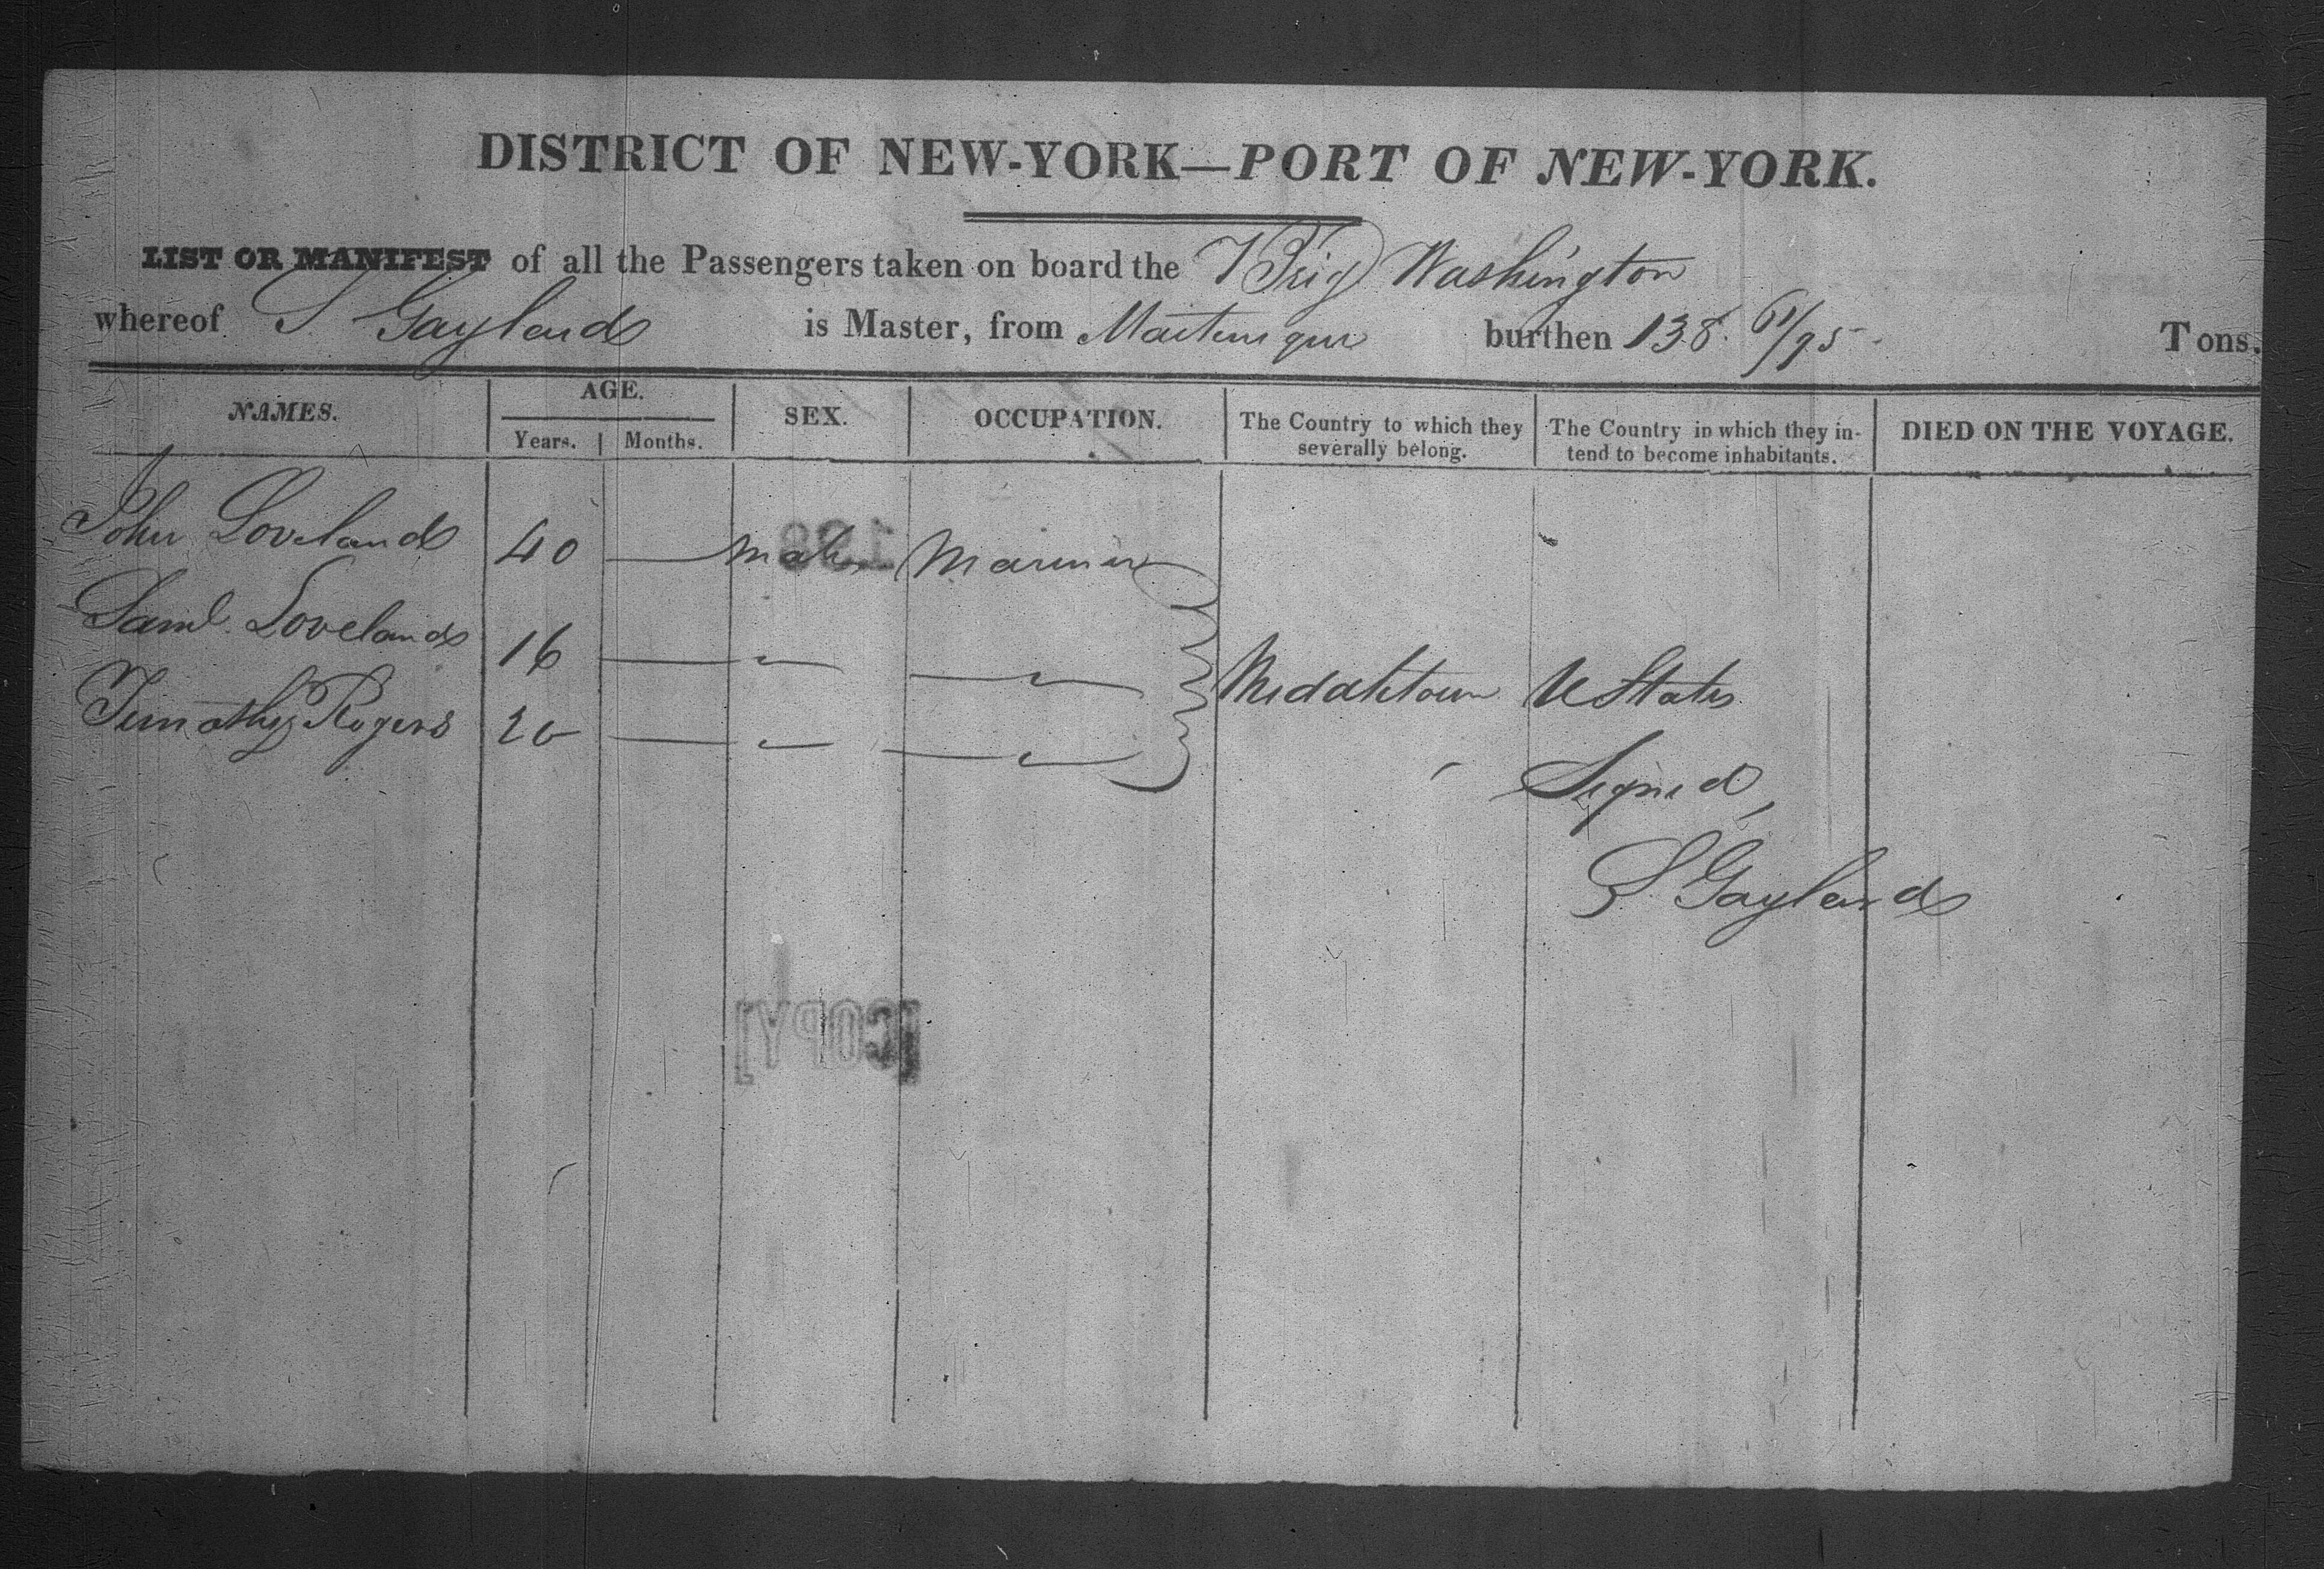 DISTRICT OF NEW-YORK—PORT OF NEW-YORK.
LIST OR MANIFEST of all the Passengers taken on board the Brig Washington
whereof S Gaylord is Master, from Martinique burthen 138. 61/95 Tons.
NAMES. AGE. Years. Months. SEX. OCCUPATION. The Country to which they severally belong. The Country in which they intend to become inhabitants. DIED ON THE VOYAGE.
John Loveland 40 — male Mariner
Saml. Loveland 16 — " — "
Timothy Rogers 20 — " — "
Middletown U States
Signed,
S Gaylord
[COPY]